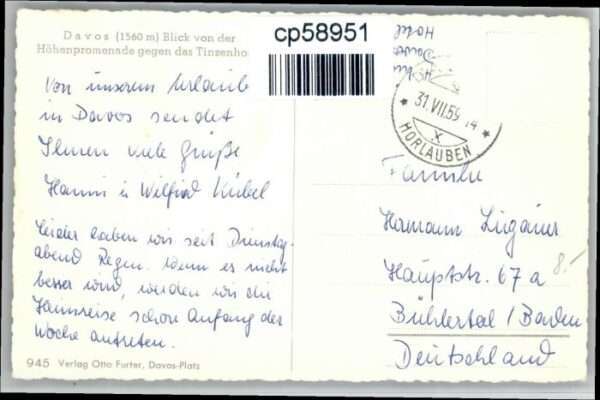 Davos (1560 m) Blick von der
Höhenpromenade gegen das Tinzenho
cp58951
Hotel
Davos
31.VII.59
X
HORLAUBEN
Von unserem Urlaub
in Davos sendet
Ihnen viele Grüße
Hanni u Wilfried Kübel
Leider haben wir seit Dienstag-
abend Regen. Wenn es nicht
besser wird, werden wir die
Heimreise schon Anfang der
Woche antreten.
Familie
Hermann
Hauptstr. 67 a
8.-
Bühlertal / Baden
Deutschland
945 Verlag Otto Furter, Davos-Platz